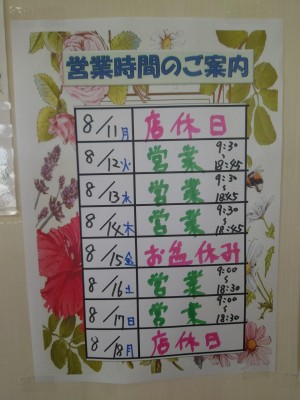 営業時間のご案内
8/11月 店休日
8/12火 営業 9:30~18:45
8/13水 営業 9:30~18:45
8/14木 営業 9:30~18:45
8/15金 お盆休み
8/16土 営業 9:00~18:30
8/17日 営業 9:00~18:30
8/18月 店休日